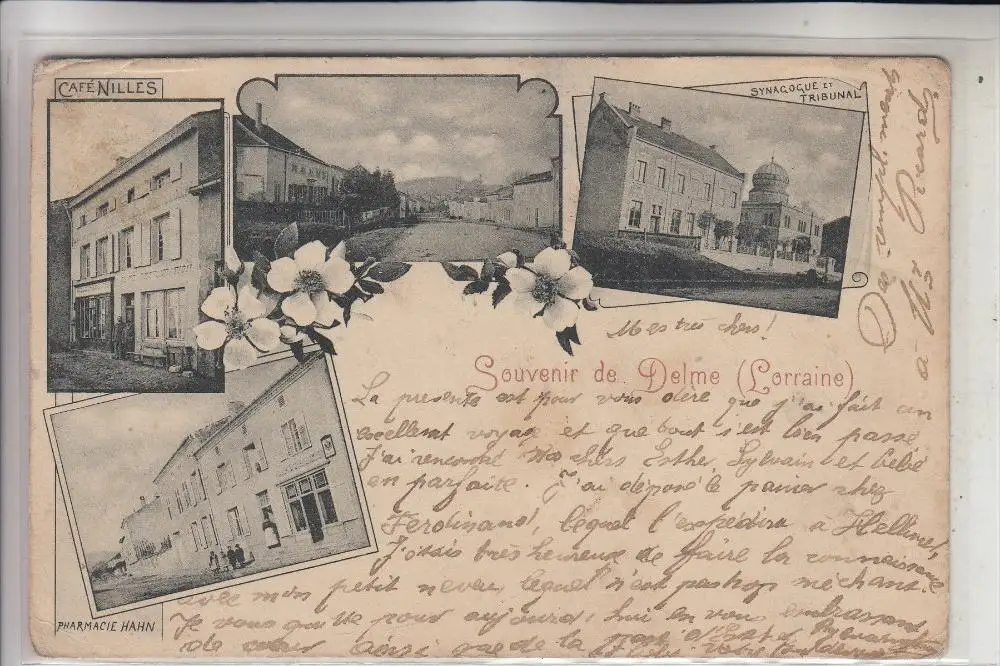 CAFÉ NILLES
SYNAGOGUE ET
TRIBUNAL
PHARMACIE HAHN
Souvenir de Delme (Lorraine)
Mes très chers!
La présente est pour vous dire que j'ai fait un
excellent voyage et que tout s'est bien passé
J'ai rencontré mes chers Esther, Sylvain et bébé
en parfaite. J'ai déposé le panier chez
Ferdinand, lequel l'expédira à Hellimer,
J'étais très heureuse de faire la connaissance
avec mon petit neveu lequel n'est pas trop méchant.
Je vous quitte pour aujourd'hui en vous embrassant
de cœur ainsi que de la part d'Esther Sylvain
Des compliments
à Mr Picard